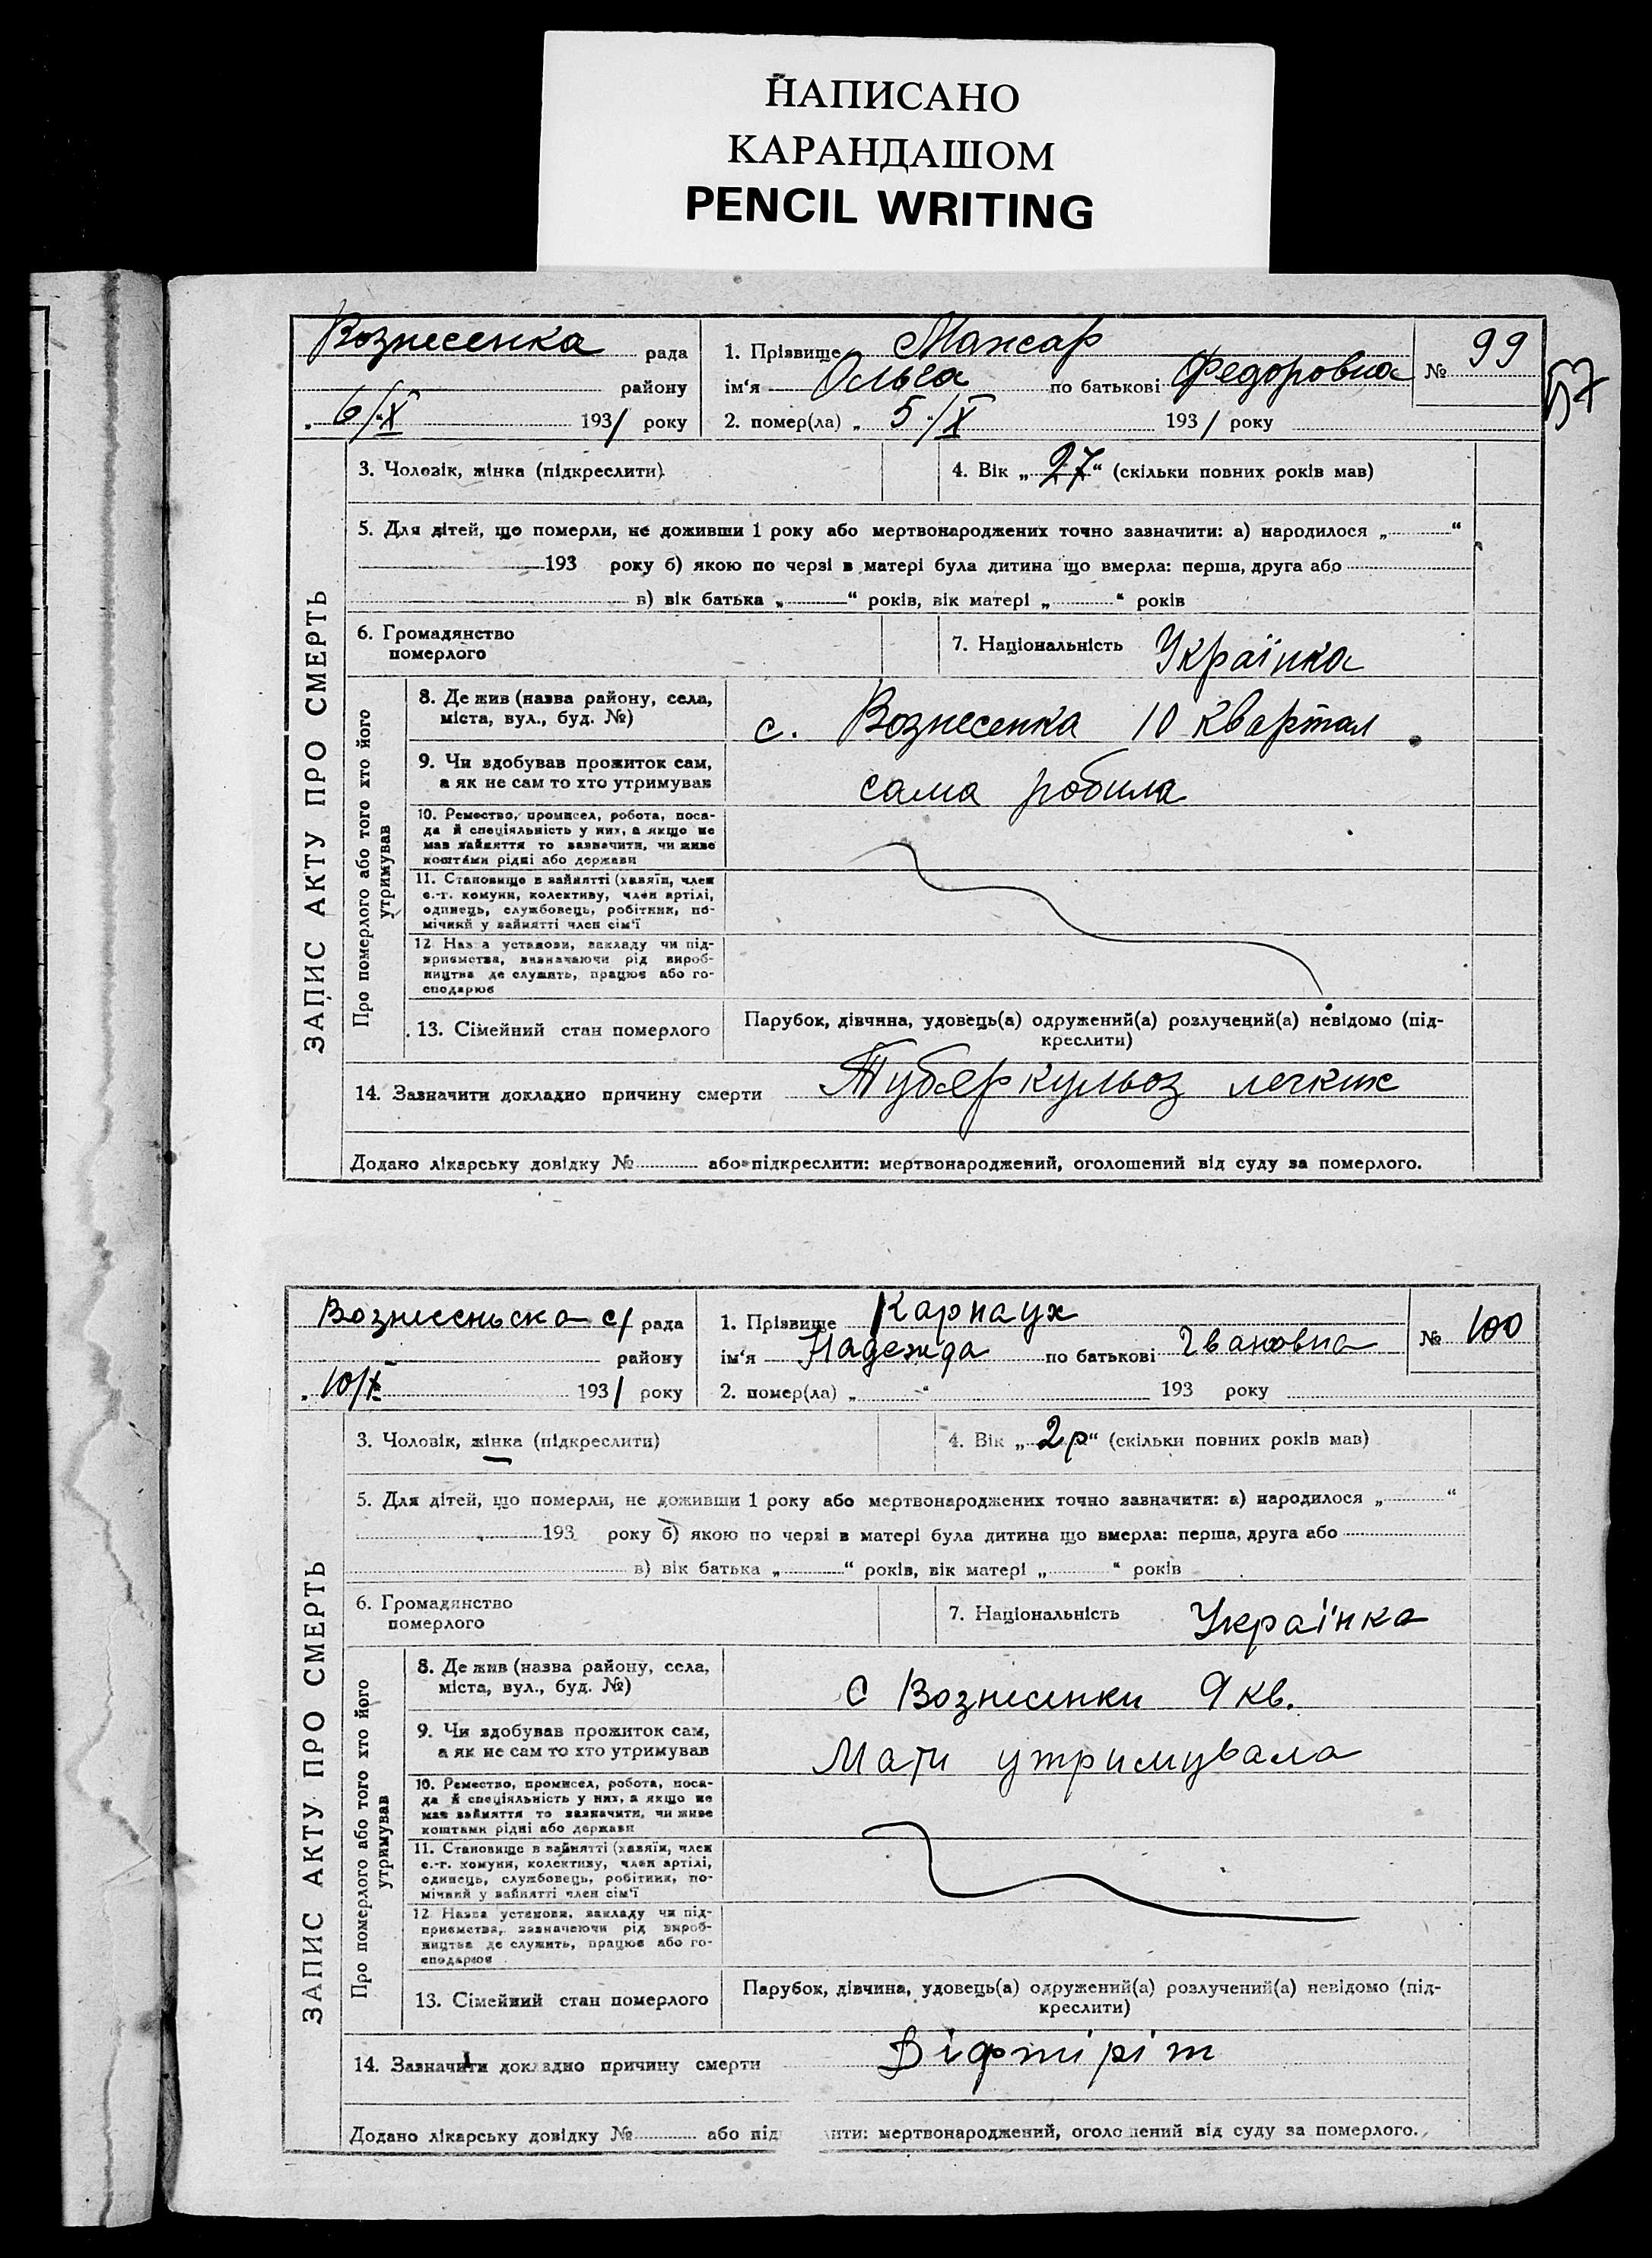 НАПИСАНО
КАРАНДАШОМ
PENCIL WRITING
57
ЗАПИС АКТУ ПРО СМЕРТЬ
Вознесенка рада
району
„ 6/"X 1931 року
1. Прізвище Мажар
ім‘я Ольга по батькові Федоровна
№ 99
2. помер(ла) „ 5"/X 1931 року
3. Чоловік, жінка (підкреслити)
4. Вік „27“ (скільки повних років мав)
5. Для дітей, що померли, не доживши 1 року або мертвонароджених точно зазначити: а) народилося „ “
193 року б) якою по черзі в матері була дитина що вмерла: перша, друга або
в) вік батька „ “ років, вік матері „ “ років
6. Громадянство
померлого
7. Національність Українка
Про померлого або того хто його
утримував
8. Де жив (назва району, села,
міста, вул., буд. №)
с. Вознесенка 10 квартал
9. Чи здобував прожиток сам,
а як не сам то хто утримував
сама робила
10. Ремество, промисел, робота, поса-
да й спеціяльність у них, а якщо не
мав зайняття то зазначити, чи живе
коштами рідні або держави
11. Становище в зайнятті (хазяїн, член
с.-г. комуни, колективу, член артілі,
одинець, службовець, робітник, по-
мічний у зайнятті член сім‘ї
12 Назва установи, закладу чи під-
приємства, зазначаючи рід вироб-
ництва де служить, працює або го-
сподарює
13. Сімейний стан померлого
Парубок, дівчина, удовець(а) одружений(а) розлучений(а) невідомо (під-
креслити)
14. Зазначити докладно причину смерти Туберкульоз легких
Додано лікарську довідку № або підкреслити: мертвонароджений, оголошений від суду за померлого.
ЗАПИС АКТУ ПРО СМЕРТЬ
Вознесеньска с/ рада
району
„ 10/X 1931 року
1. Прізвище Карнаух
ім‘я Надежда по батькові Івановна
№ 100
2. помер(ла) „ “ 193 року
3. Чоловік, жінка (підкреслити)
4. Вік „2р“ (скільки повних років мав)
5. Для дітей, що померли, не доживши 1 року або мертвонароджених точно зазначити: а) народилося „ “
193 року б) якою по черзі в матері була дитина що вмерла: перша, друга або
в) вік батька „ “ років, вік матері „ “ років
6. Громадянство
померлого
7. Національність Українка
Про померлого або того хто його
утримував
8. Де жив (назва району, села,
міста, вул., буд. №)
С Вознесенки 9 кв.
9. Чи здобував прожиток сам,
а як не сам то хто утримував
Мати утримувала
10. Ремество, промисел, робота, поса-
да й спеціяльність у них, а якщо не
мав зайняття то зазначити, чи живе
коштами рідні або держави
11. Становище в зайнятті (хазяїн, член
с.-г. комуни, колективу, член артілі,
одинець, службовець, робітник, по-
мічний у зайнятті член сім‘ї
12 Назва установи, закладу чи під-
приємства, зазначаючи рід вироб-
ництва де служить, працює або го-
сподарює
13. Сімейний стан померлого
Парубок, дівчина, удовець(а) одружений(а) розлучений(а) невідомо (під-
креслити)
14. Зазначити докладно причину смерти Діфтіріт
Додано лікарську довідку № або під ити: мертвонароджений, оголо ений від суду за померлого.